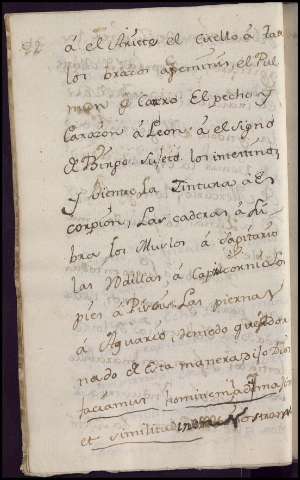 á el Aries el Cuello á Tau
los brazos a geminis, el Pul
mon á Carro El pecho y
Corazon á Leon á el Signo
de Birgo Sujeto los intestinos
y Vientre la Zintura á Es
corpion, Las caderas á Li
bra los Muslos á Sagitario
las Rodillas á Capricornio los
pies á Pisis Las piernas
á Aquario, de modo que
nado de Esta manera dijo Dios
faciamus hominem ad imaginem
et similitudinem nostram